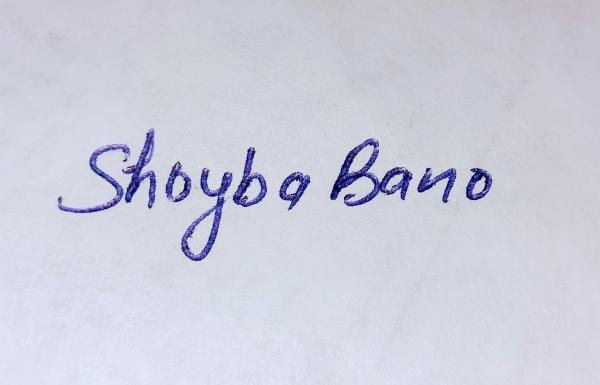 Shoyba Bano